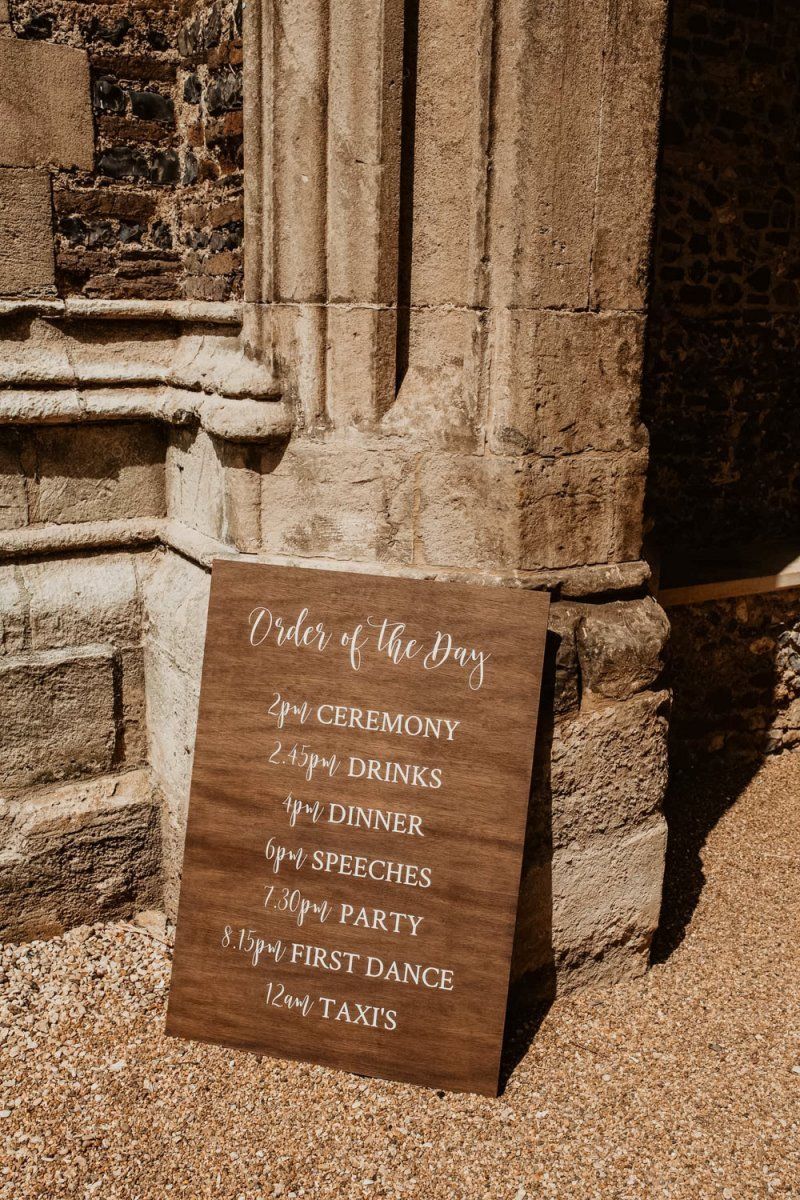 Order of the Day
2pm CEREMONY
2.45pm DRINKS
4pm DINNER
6pm SPEECHES
7.30pm PARTY
8.15pm FIRST DANCE
12am TAXI'S